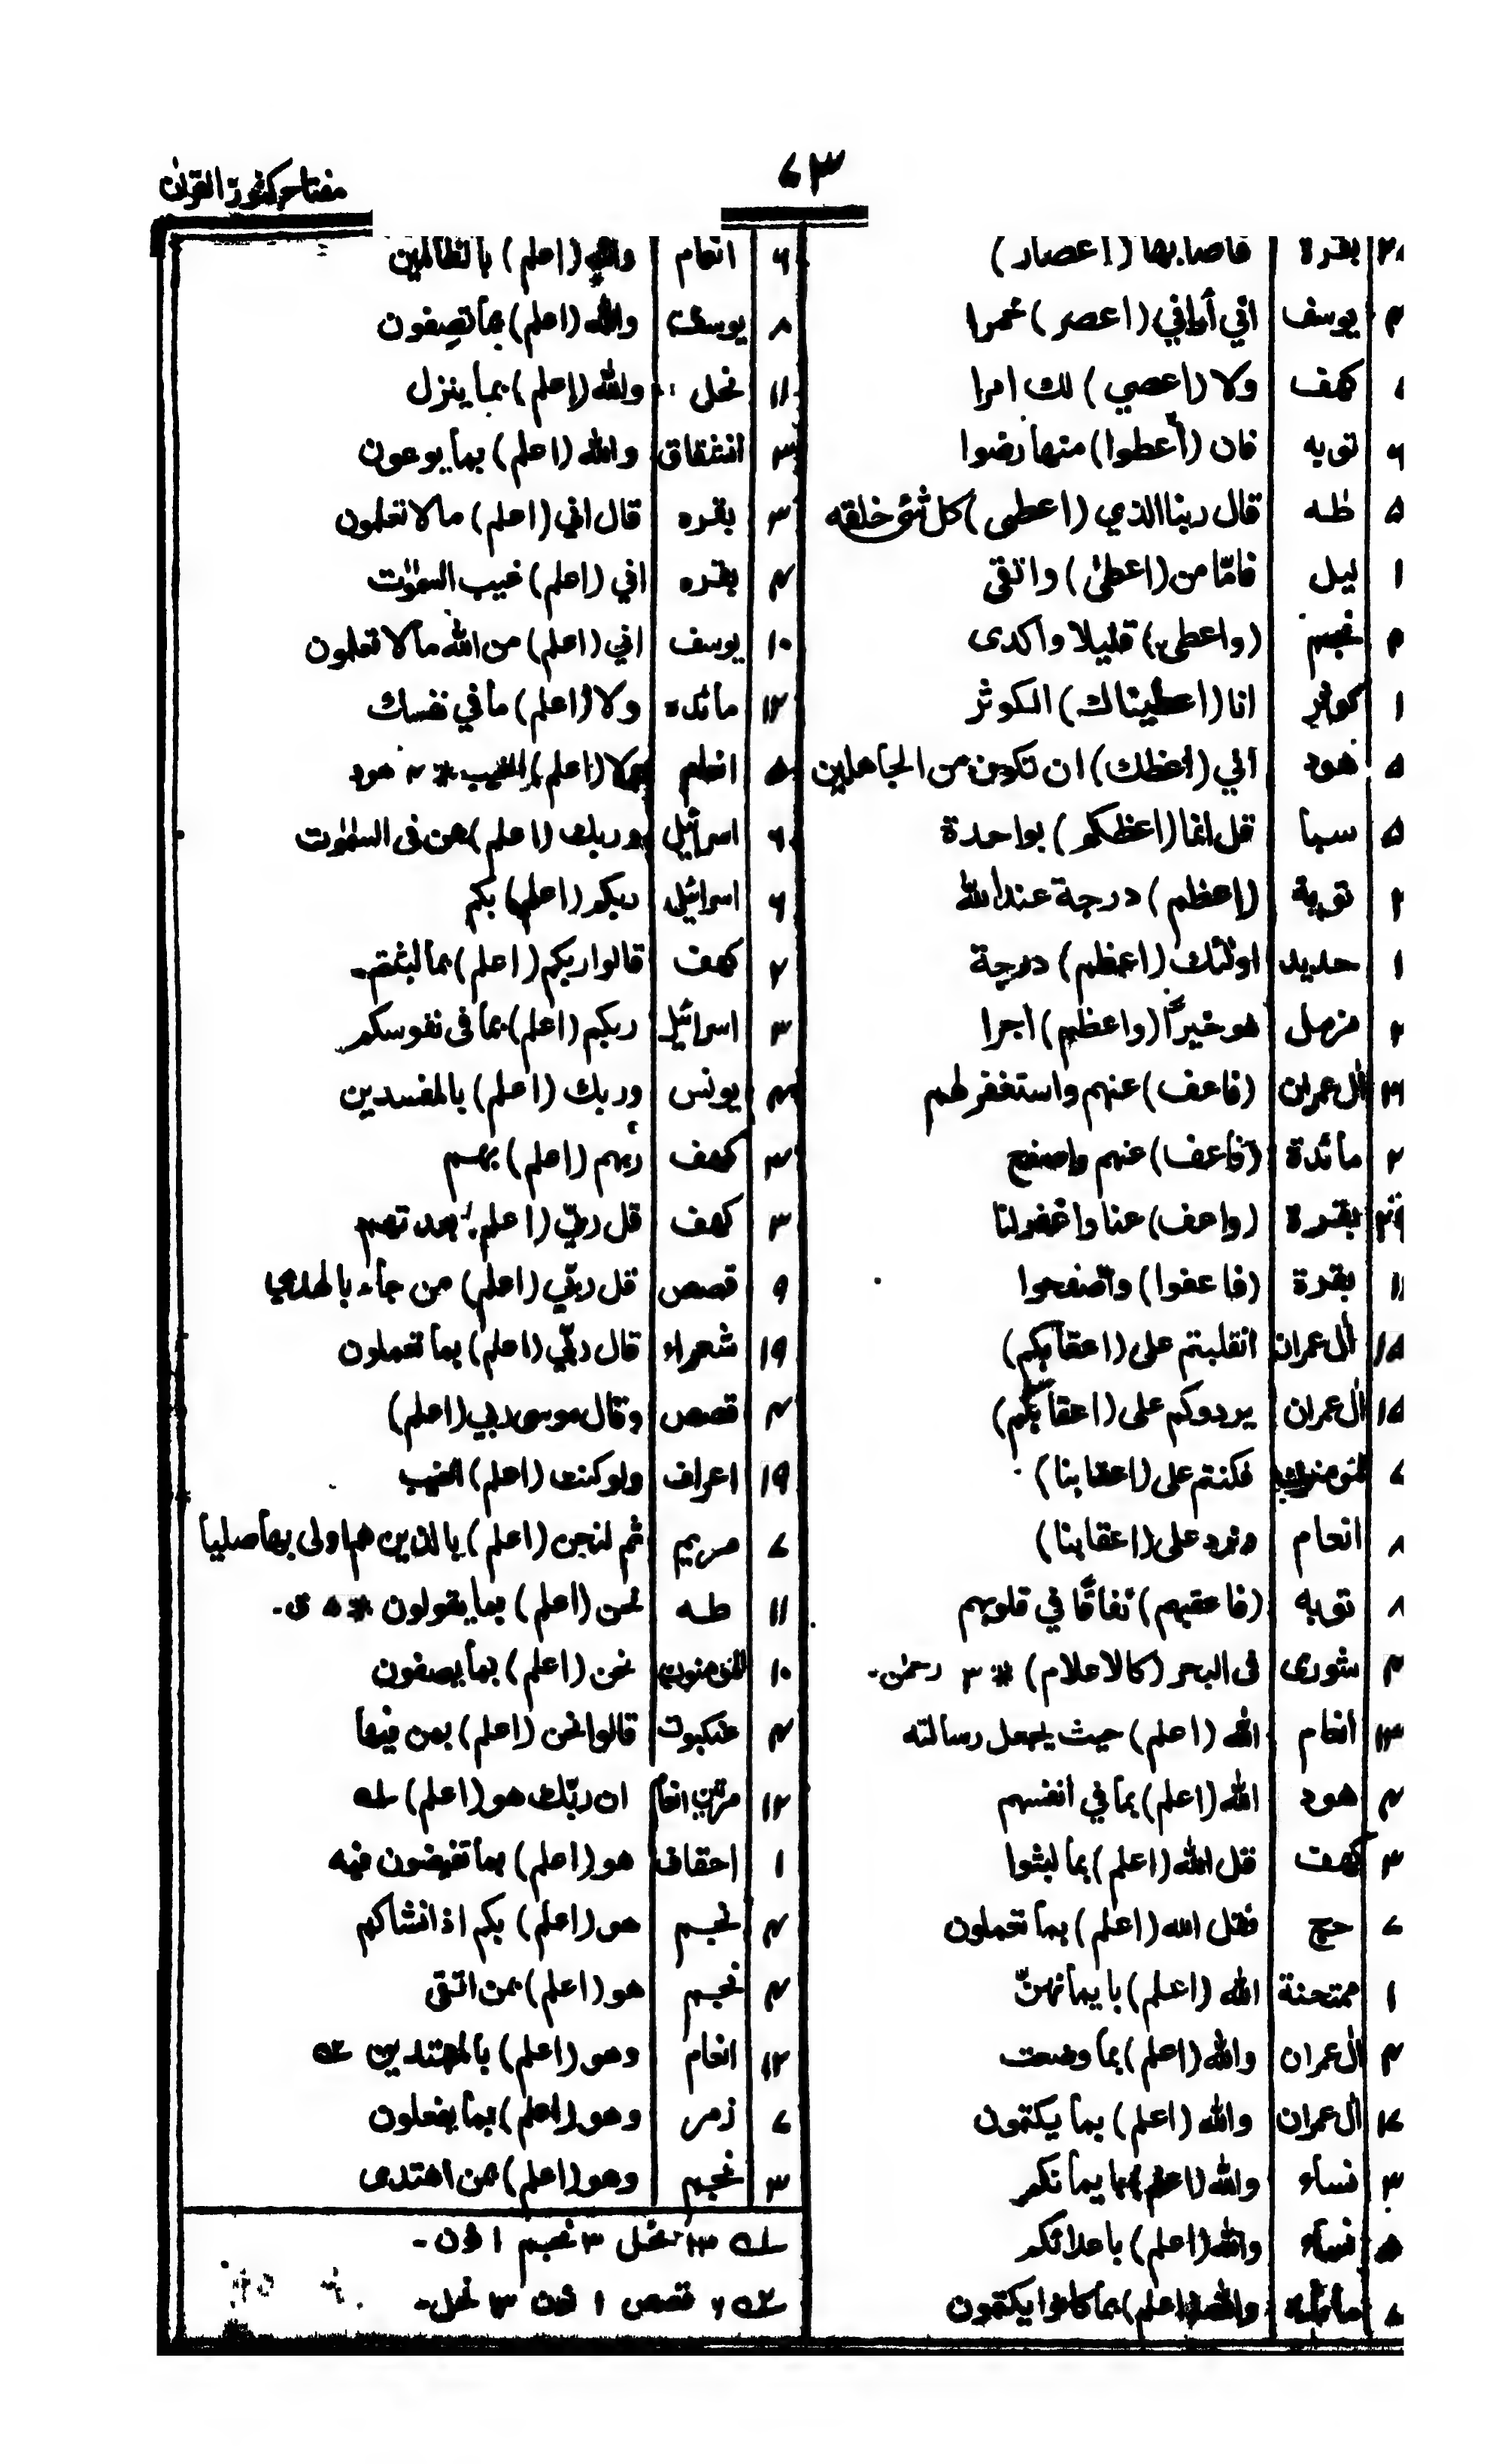 ۷۳
مفتاح کنوز القرآن
بقرة فاصابها (اعصار)
۴ یوسف اني أراني (اعصر) خمرا
کهف ولا (اعصي) لك امرا
۶ توبه فان (أعطوا) منها رضوا
۵ طٰه قال ربنا الذي (اعطى) كل شئ خلقه
۱ لیل فامّا من (اعطٰى) واتقى
نجم (واعطى) قليلا واكدى
۱ کوثر انا (اعطيناك) الكوثر
۵ هود اني (اعظك) ان تكون من الجاهلين
۵ سبا قل انما (اعظكم) بواحدة
۲ توبة (اعظم) درجة عند الله
۱ حدید اولٰئك (اعظم) درجة
۲ مزمل هو خيراً (واعظم) اجرا
اٰل عمران (فاعف) عنهم واستغفر لهم
۲ مائدة (فاعف) عنهم واصفح
بقرة (واعف) عنا واغفر لنا
۱۱ بقرة (فاعفوا) واصفحوا
۱۵ اٰل عمران انقلبتم على (اعقابكم)
۱۵ اٰل عمران يردوكم على (اعقابكم)
۷ فكنتم على (اعقابنا)
۸ انعام ونرد على (اعقابنا)
۸ توبه (فاعقبهم) نفاقًا في قلوبهم
۴ شوری فى البحر (كالاعلام) * ۳ رحمٰن۔
انعام الله (اعلم) حيث يجعل رسالته
۴ هود الله (اعلم) بما في انفسهم
۳ کهف قل الله (اعلم) بما لبثوا
۷ حج فقل الله (اعلم) بما تعملون
۱ ممتحنة الله (اعلم) بايمانهنّ
۴ اٰل عمران والله (اعلم) بما وضعت
۱۷ اٰل عمران والله (اعلم) بما يكتمون
نساء والله (اعلم) بايمانكم
نساء والله (اعلم) باعدائكم
والله (اعلم) بما كانوا يكتمون
۶ انعام والله (اعلم) بالظالمين
۸ یوسف والله (اعلم) بما تصفون
۱۱ نحل والله (اعلم) بما ينزل
انشقاق والله (اعلم) بما يوعون
۳ بقره قال اني (اعلم) ما لا تعلمون
۴ بقره اني (اعلم) غيب السمٰوٰت
۱۰ یوسف اني (اعلم) من الله ما لا تعلمون
۱۲ مائده ولا (اعلم) ما في نفسك
۵ انعام ولا (اعلم) الغيب * هود
۶ اسرائيل وربك (اعلم) بمن فى السمٰوٰت
۶ اسرائيل ربكم (اعلم) بكم
۲ کهف قالوا ربكم (اعلم) بما لبثتم۔
۳ اسرائيل ربكم (اعلم) بما فى نفوسكم
۴ یونس وربك (اعلم) بالمفسدين
۳ کهف ربهم (اعلم) بهم
۳ کهف قل ربّي (اعلم) بعدتهم
۹ قصص قل ربّي (اعلم) من جاء بالهدي
۱۹ شعراء قال ربّي (اعلم) بما تعملون
۴ قصص وقال موسى ربي (اعلم)
۱۹ اعراف ولو كنت (اعلم) الغيب
۷ مریم ثم لنحن (اعلم) بالذين هم اولى بها صليا
۱۱ طه نحن (اعلم) بما يقولون * ۵ ق۔
۱۰ نحن (اعلم) بما يصفون
۴ عنكبوت قالوا نحن (اعلم) بمن فيها
۱۲ انعام ان ربّك هو (اعلم) ۱ے
۱ احقاف هو (اعلم) بما تفيضون فيه
۴ نجم هو (اعلم) بكم اذ انشاكم
۴ نجم هو (اعلم) بمن اتقى
۱۲ انعام وهو (اعلم) بالمهتدين ۲ے
۷ زمر وهو (اعلم) بما يفعلون
۳ نجم وهو (اعلم) بمن اهتدى
۱ے نحل ۳ نجم ۱ نون۔
۲ے قصص ۱ نون نحل۔